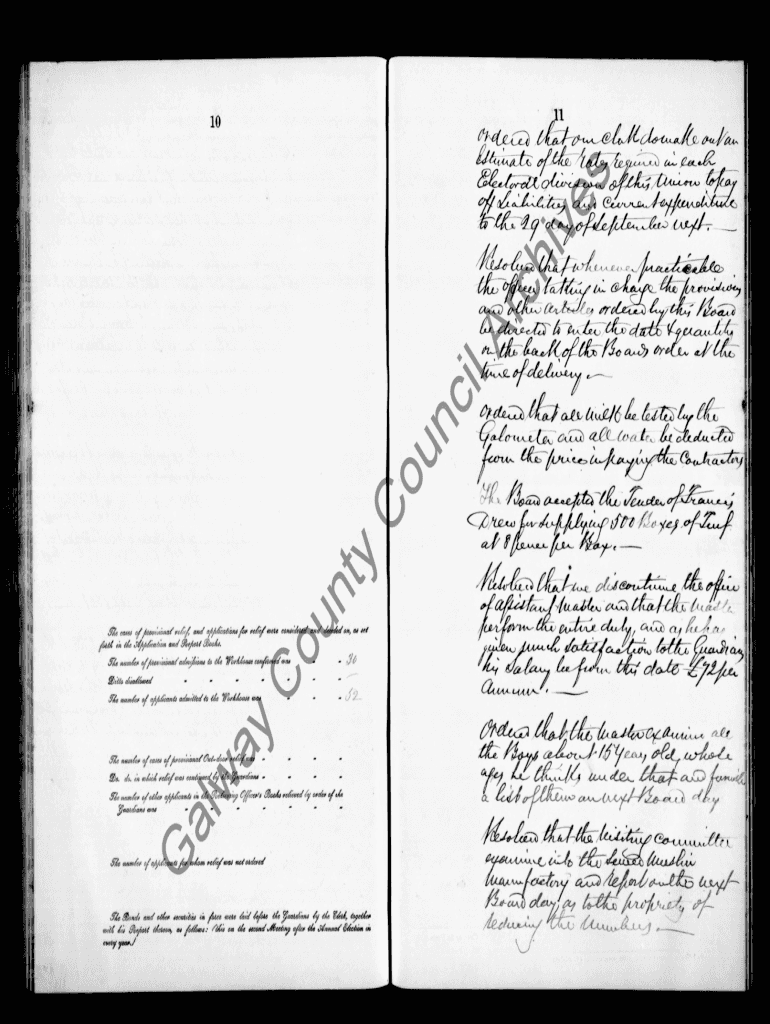 10
The cases of provisional relief, and applications for relief were considered and decided on, as set
forth in the Application and Report Books.
The number of provisional admissions to the Workhouse confirmed was 30
Ditto disallowed —
The number of applicants admitted to the Workhouse was 52
The number of cases of provisional Out-door relief was
Do. do. in which relief was continued by the Guardians
The number of other applicants in the Relieving Officer's Books relieved by order of the
Guardians was
The number of applicants for whom relief was not ordered
The Bonds and other securities in force were laid before the Guardians by the Clerk, together
with his Report thereon, as follows: (this on the second Meeting after the Annual Election in
every year.)
11
Ordered that our Clerk do make out an
Estimate of the rates required in each
Electoral division of this Union to pay
off Liabilities and Current expenditure
to the 29 day of September next. —
Resolved that whenever practicable
the officer taking in charge the provisions
and other articles ordered by this Board
be directed to enter the date & quantity
on the back of the Boards order at the
time of delivery —
Ordered that all milk be tested by the
Galometer and all water be deducted
from the price in paying the Contractors
The Board accepted the Tender of Francis
Drew for Supplying 500 Boxes of Turf
at 8 pence per Box. —
Resolved that we discontinue the office
of assistant master and that the master
perform the entire duty, and as he has
given much satisfaction to the Guardians
his Salary be from this date £72 per
Annum. —
Ordered that the master examine all
the Boys about 15 years old, whose
ages he thinks under that and furnish
a list of them on next Board day
Resolved that the Visiting Committee
examine into the Sewed Muslin
Manufactory and report on the next
Board day, as to the propriety of
reducing the numbers. —
Galway County Council Archives